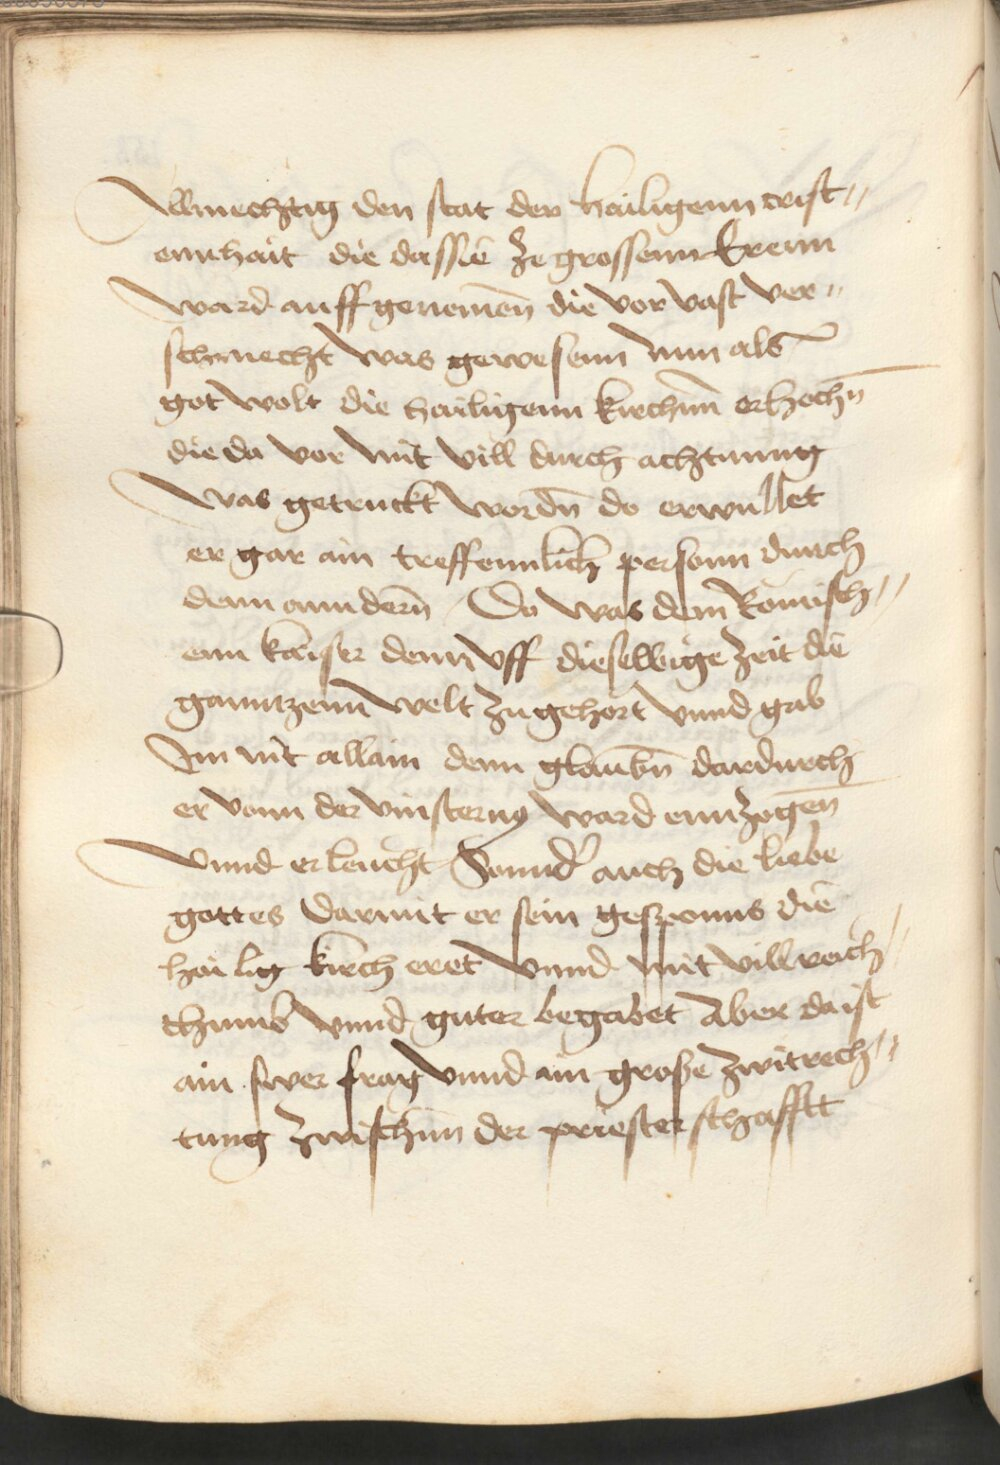 Allmechtig den stat der hailigenn crist„
ennhait die dassie ze grossenn Erenn
ward auff genomē die vor vast ver„
schmecht was gewesenn nun als
got wolt die hailigenn kirchnn erhochn̄
die da vor mit vill durch achtunng
was getruckt wordn̄ do erwullet
er gar ain treffennlich personn durch
denn anndern̄ Do was dem Römisch„
enn kaiser denn vff dieselbige zeit die
ganntzenn welt zugehort vnnd gab
Im nit allain denn glaubn̄ dardurch
er vonn der vinsternus ward enntzogen̄
vnnd erleucht Sonnd' auch die liebe
gottes darmit er sein gesponns die
hailig kirch eret vnnd mit vill reich„
thumb vnnd guter begabet Aber da ist
ain swer frag vnnd ain große zwitrech„
tung zwischnn der priesterschafftt